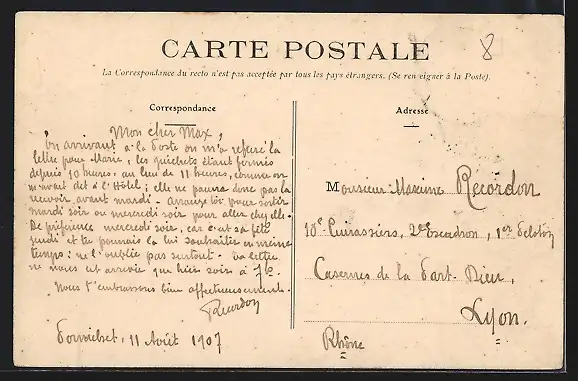 CARTE POSTALE
8
La Correspondance du recto n'est pas acceptée par tous les pays étrangers. (Se renseigner à la Poste).
Correspondance
Adresse
Mon cher Max,
En arrivant à la Poste on m'a refusé la
lettre pour Marie, les guichets étant fermés
depuis 10 heures, au lieu de 11 heures, comme on
m'avait dit à l'Hôtel; elle ne pourra donc pas la
recevoir avant mardi. Arrange toi pour sortir
mardi soir ou mercredi soir pour aller chez elle.
De préférence mercredi soir, car c'est sa fête
jeudi et tu pourrais la lui souhaiter en même
temps; ne l'oublie pas surtout. Ta lettre
ne nous est arrivée que hier soir à 7h.
Nous t'embrassons bien affectueusement.
Recordon
11 Août 1907
Monsieur Maxime Recordon
10e Cuirassiers, 2e Escadron, 1er Peloton
Casernes de la Part-Dieu,
Lyon.
Rhône